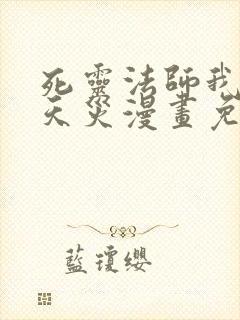 死靈法師我
天災漫畫免
藍瓊纓